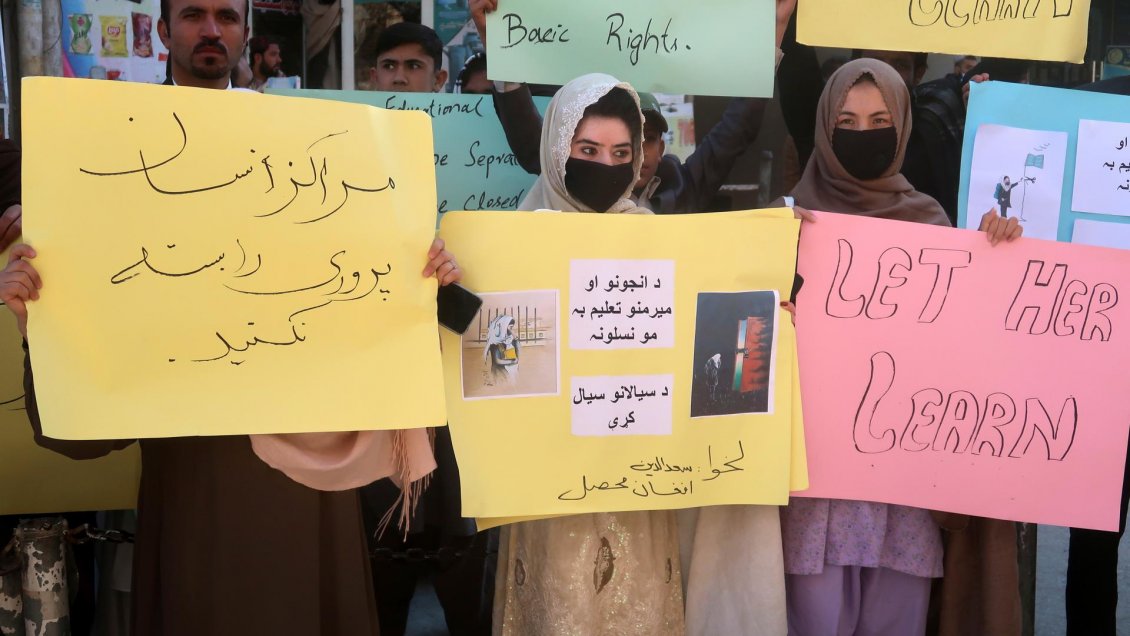 Basic Rights.
Educational
Closed
مراکز انسان
پروری را بسته
نکنید.
د انجونو او
میرمنو تعلیم به
مو نسلونه
د سیالانو سیال
کړي
لخوا: سعدالدین
افغان محصل
LET HER
LEARN
او
تعلیم به